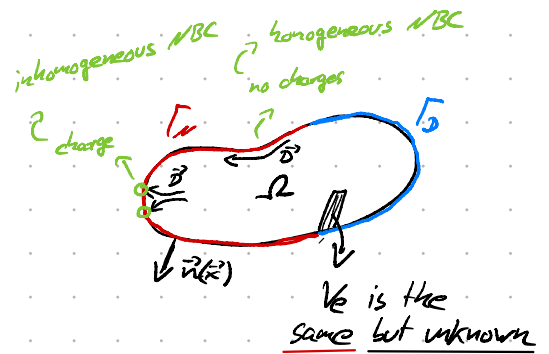 inhomogeneous NBC
homogeneous NBC
no charges
charge
Γ_N
Γ_D
D⃗
D⃗
Ω
n⃗(x⃗)
Ve is the
same but unknown